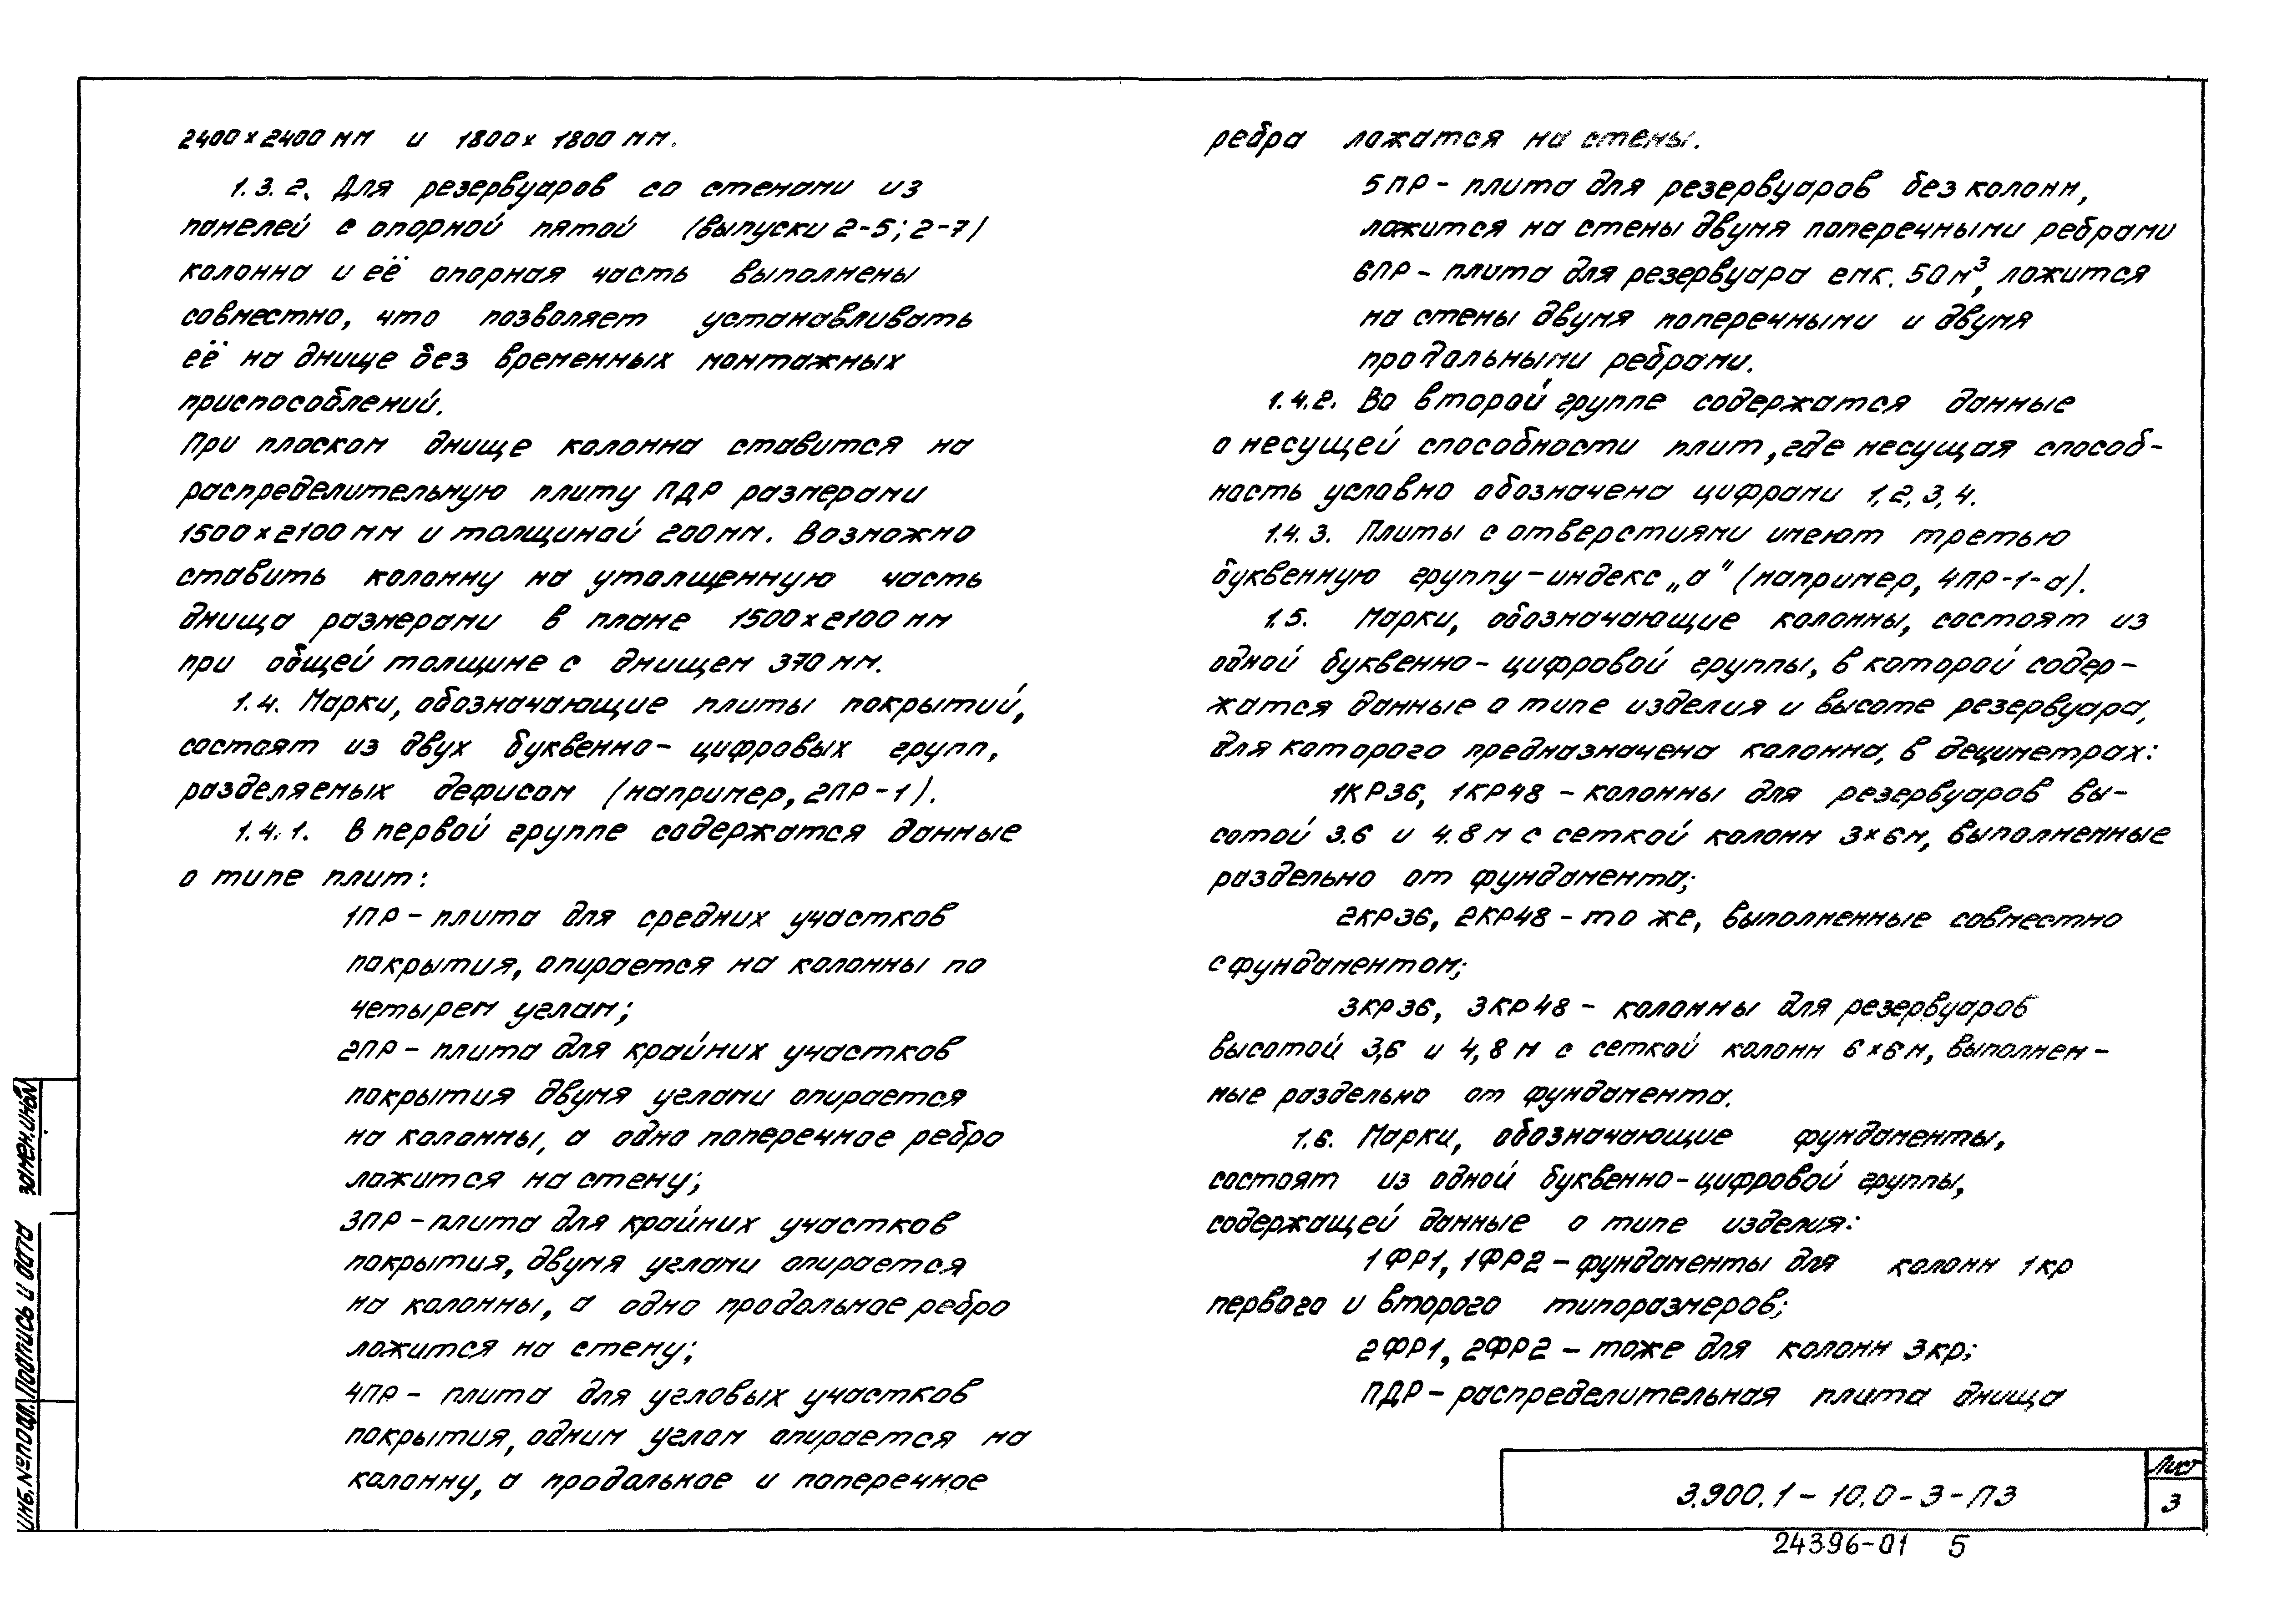 2400×2400 мм и 1800×1800 мм.
1.3.2. Для резервуаров со стенами из
панелей с опорной пятой (выпуски 2-5; 2-7)
колонна и её опорная часть выполнены
совместно, что позволяет устанавливать
её на днище без временных монтажных
приспособлений.
При плоском днище колонна ставится на
распределительную плиту ПДР размерами
1500×2100 мм и толщиной 200 мм. Возможно
ставить колонну на утолщенную часть
днища размерами в плане 1500×2100 мм
при общей толщине с днищем 370 мм.
1.4. Марки, обозначающие плиты покрытий,
состоят из двух буквенно-цифровых групп,
разделяемых дефисом (например, 2ПР-1).
1.4.1. В первой группе содержатся данные
о типе плит:
1ПР - плита для средних участков
покрытия, опирается на колонны по
четырем углам;
2ПР - плита для крайних участков
покрытия двумя углами опирается
на колонны, а одно поперечное ребро
ложится на стену;
3ПР - плита для крайних участков
покрытия, двумя углами опирается
на колонны, а одно продольное ребро
ложится на стену;
4ПР - плита для угловых участков
покрытия, одним углом опирается на
колонну, а продольное и поперечное
ребра ложатся на стены.
5ПР - плита для резервуаров без колонн,
ложится на стены двумя поперечными ребрами
6ПР - плита для резервуара емк. 50 м³, ложится
на стены двумя поперечными и двумя
продольными ребрами.
1.4.2. Во второй группе содержатся данные
о несущей способности плит, где несущая способ-
ность условно обозначена цифрами 1, 2, 3, 4.
1.4.3. Плиты с отверстиями имеют третью
буквенную группу-индекс „а" (например, 4ПР-1-а).
1.5. Марки, обозначающие колонны, состоят из
одной буквенно-цифровой группы, в которой содер-
жатся данные о типе изделия и высоте резервуара,
для которого предназначена колонна, в дециметрах:
1КР36, 1КР48 - колонны для резервуаров вы-
сотой 3.6 и 4.8 м с сеткой колонн 3×6м, выполненные
раздельно от фундамента;
2КР36, 2КР48 - то же, выполненные совместно
с фундаментом;
3КР36, 3КР48 - колонны для резервуаров
высотой 3,6 и 4,8 м с сеткой колонн 6×6м, выполнен-
ные раздельно от фундамента.
1.6. Марки, обозначающие фундаменты,
состоят из одной буквенно-цифровой группы,
содержащей данные о типе изделия:
1ФР1, 1ФР2 - фундаменты для колонн 1кр
первого и второго типоразмеров;
2ФР1, 2ФР2 - тоже для колонн 3кр;
ПДР - распределительная плита днища
3.900.1-10.0-3-ПЗ
Лист
3
24396-01 5
Инв.№подл. Подпись и дата Взамен.инв№